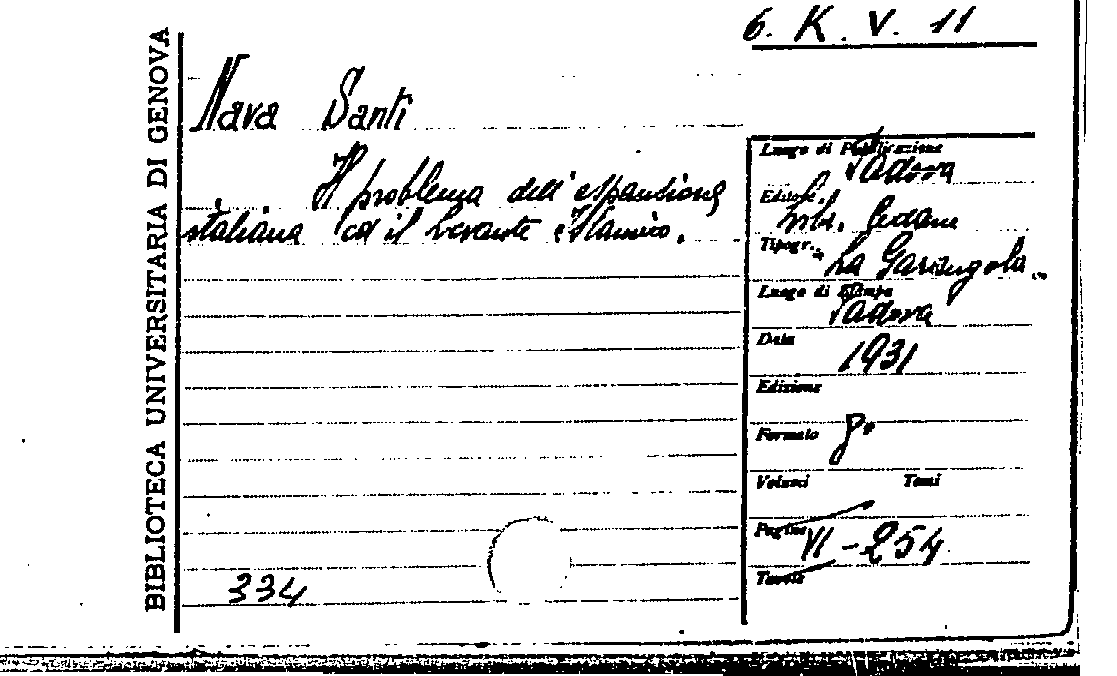 6. K. V. 11
BIBLIOTECA UNIVERSITARIA DI GENOVA
Nava Santi
Il problema dell'espansione
italiana ed il Levante Islamico.
334
Luogo di Pubblicazione
Padova
Editore
Cedam
Tipogr.
La Garangola
Luogo di Stampa
Padova
Data
1931
Edizione
Formato
8°
Volumi Tomi
Pagine
VI-254
Tavole